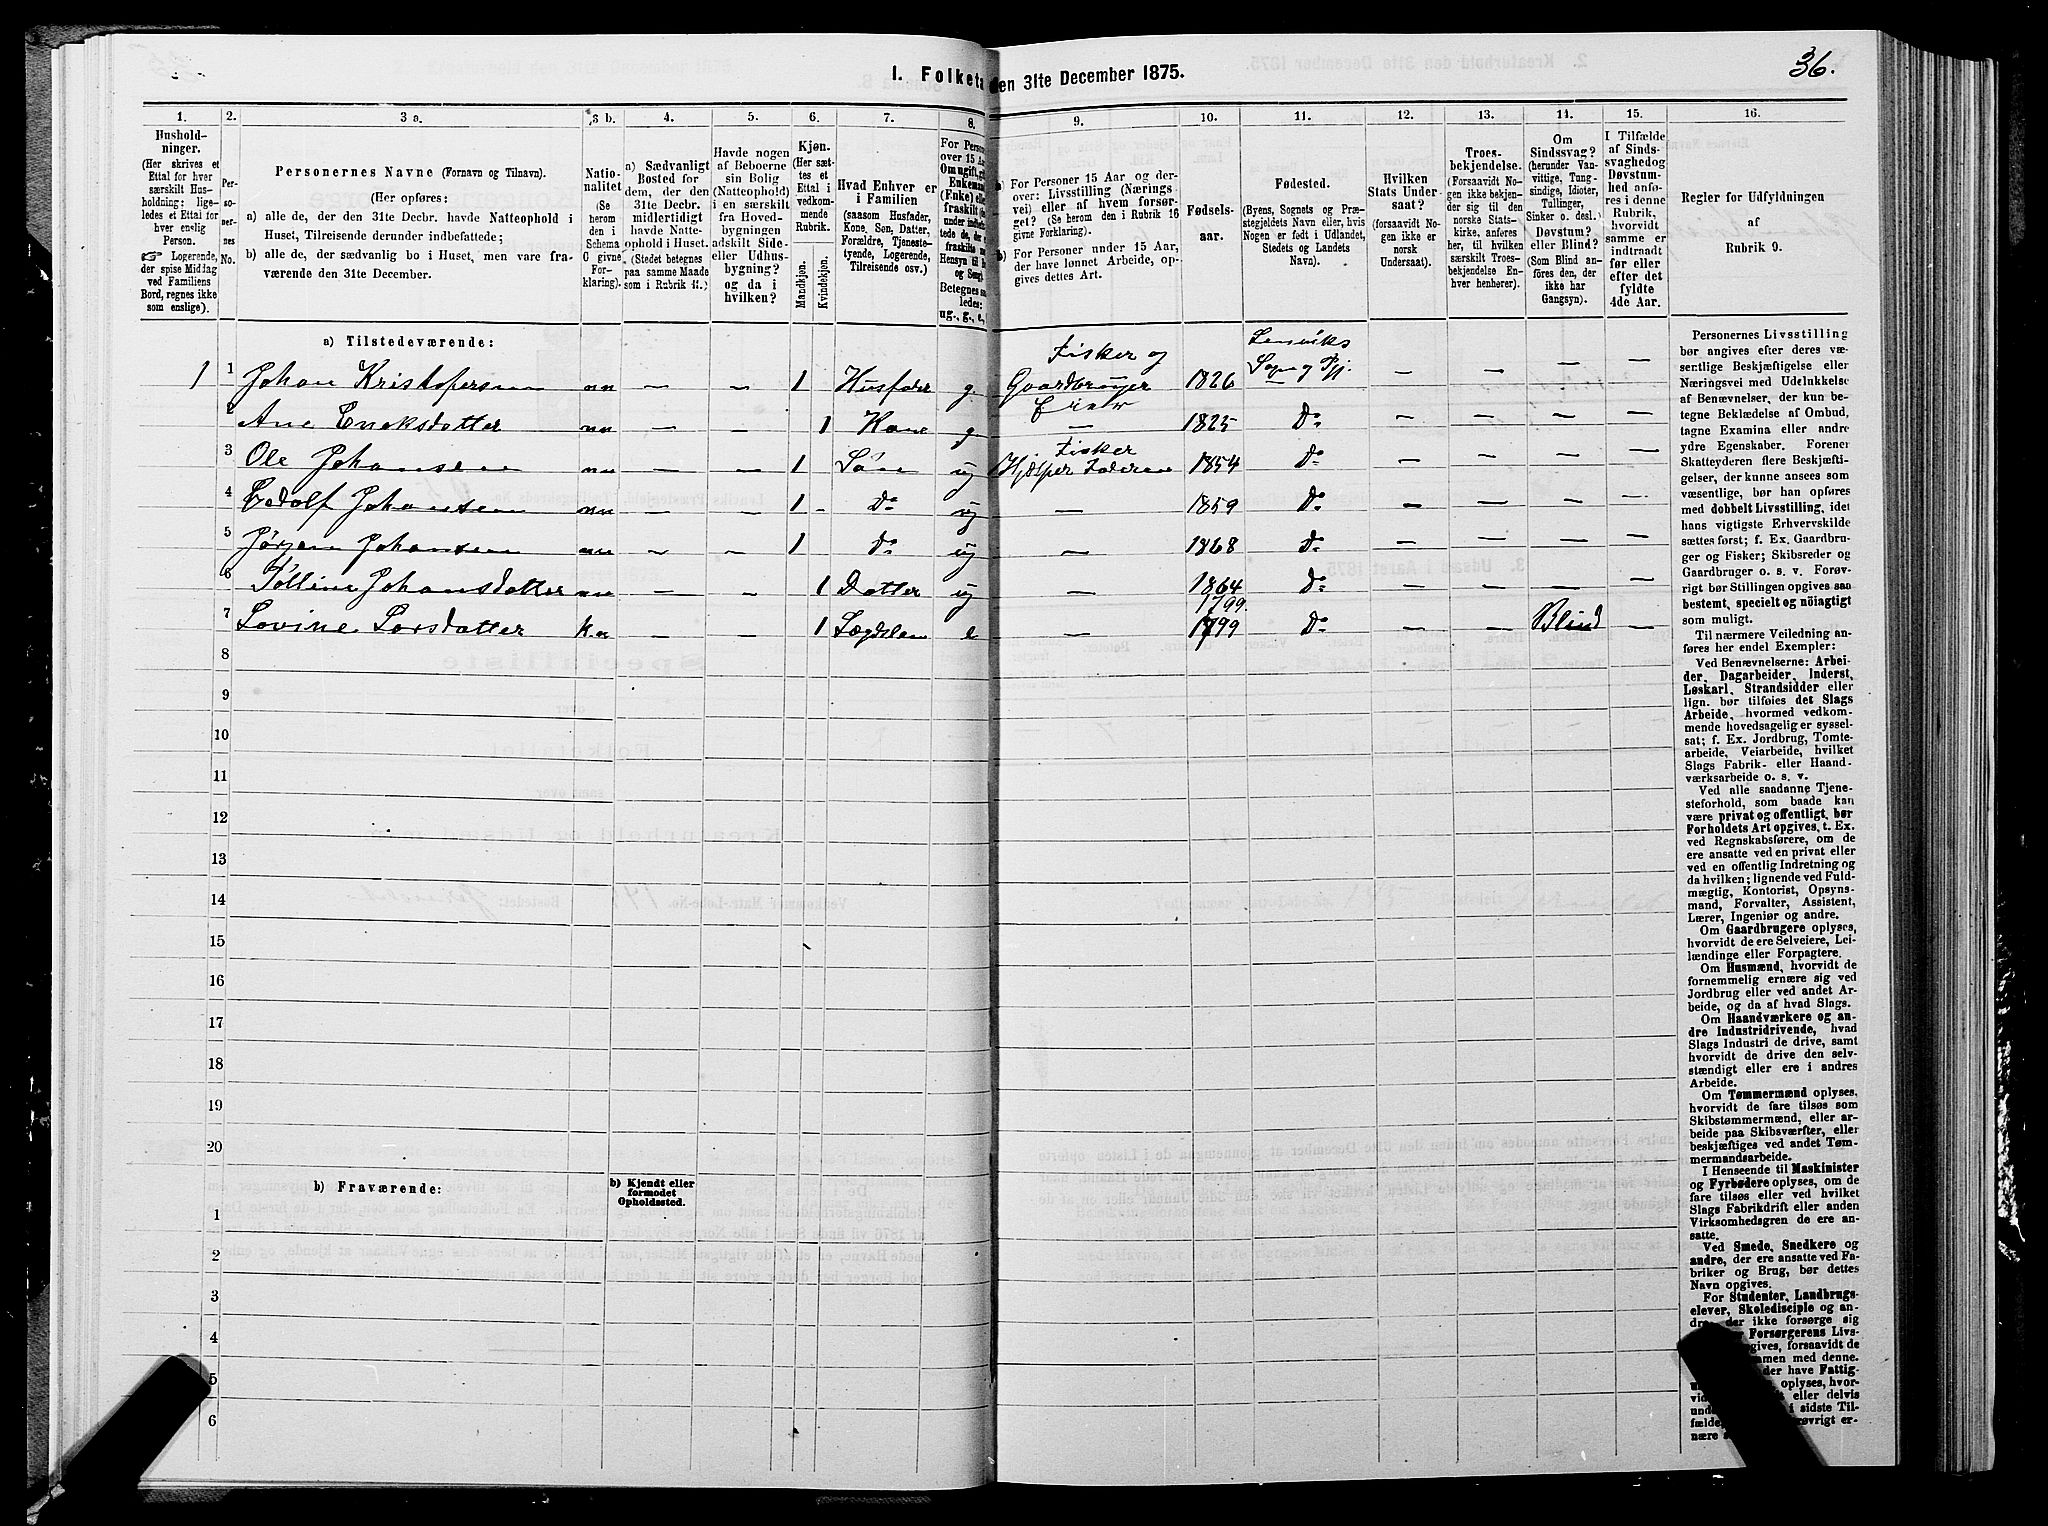 36.
I. Folketæ den 31te December 1875.
1. 2. 3 a. 3 b. 4. 5. 6. 7. 8. 9. 10. 11. 12. 13. 14. 15. 16.
Hushold-
ninger.
(Her skrives et
Ettal for hver
særskilt Hus-
holdning; lige-
ledes et Ettal for
hver enslig
Person.
☞ Logerende,
der spise Middag
ved Familiens
Bord, regnes ikke
som enslige).
Per-
soner-
nes
No.
Personernes Navne (Fornavn og Tilnavn).
(Her opføres:
a) alle de, der den 31te Decbr. havde Natteophold i
Huset, Tilreisende derunder indbefattede;
b) alle de, der sædvanlig bo i Huset, men vare fra-
værende den 31te December.
Natio-
nalitet
(Se
herom
den i
Schema
C givne
For-
klaring).
a) Sædvanligt
Bosted for
dem, der den
31te Decbr.
midlertidigt
havde Natte-
ophold i Huset.
(Stedet betegnes
paa samme Maade
som i Rubrik 11.)
Havde nogen
af Beboerne
sin Bolig
(Natteophold)
i en særskilt
fra Hoved-
bygningen
adskilt Side-
eller Udhus-
bygning?
og da i
hvilken?
Kjøn.
(Her sæt-
tes et
Ettal i
vedkom-
mende
Rubrik.
Mandkjøn.
Kvindekjøn.
Hvad Enhver er
i Familien
(saasom Husfader,
Kone, Søn, Datter,
Forældre, Tjeneste-
tyende, Logerende,
Tilreisende osv.)
For Person
over 15 Aar
Om ugift, gift
Enkemand
(Enke) eller
fraskilt
Betegnes saa-
ledes:
ug., g., e.,
a) For Personer 15 Aar og der-
over: Livsstilling (Nærings-
vei) eller af hvem forsør-
get? (Se herom den i Rubrik 16
givne Forklaring).
b) For Personer under 15 Aar,
der have lønnet Arbeide, op-
gives dettes Art.
Fødsels-
aar.
Fødested.
(Byens, Sognets og Præ-
stegjeldets Navn eller, hvis
Nogen er født i Udlandet,
Stedets og Landets
Navn).
Hvilken
Stats Under-
saat?
(forsaavidt No-
gen ikke er
norsk
Undersaat).
Troes-
bekjendelse.
(Forsaavidt No-
gen ikke bekjen-
der sig til den
norske Stats-
kirke, anføres
her, til hvilken
særskilt Troes-
bekjendelse En-
hver henhører).
Om
Sindssvag?
(herunder Van-
vittige, Tung-
sindige, Idioter,
Tullinger,
Sinker o. desl.)
Døvstum?
eller Blind?
(Som Blind an-
føres den, der
ikke har
Gangsyn).
I Tilfælde
af Sinds-
svaghed og
Døvstum-
hed anfø-
res i denne
Rubrik,
hvorvidt
samme er
indtraadt
før eller
efter det
fyldte
4de Aar.
Regler for Udfyldningen
af
Rubrik 9.
a) Tilstedeværende:
1 1 Johan Kristofersen nn — — 1 Husfader g. Fisker og Gaardbruger 1826 Lenviks Sogn og Pgj. — — — —
2 Ane Eneksdatter nn — — 1 Kone g. — 1825 Do — — — —
3 Ole Johansen nn — — 1 Søn ug Fisker Hjelper Faderen 1854 Do — — — —
4 Edolf Johansen nn — — 1 - Do ug — 1859 Do — — — —
5 Jørgen Johansen nn — — 1 Do ug — 1868 Do — — — —
6 Tølline Johansdatter nn — — 1 Datter ug — 1864 Do — — — —
7 Lovine Larsdatter k.n — — 1 Lægdslem e — 1799. 1799 Do — — Blind —
8
9
10
11
12
13
14
15
16
17
18
19
20
b) Fraværende:
b) Kjendt eller
formodet
Opholdssted.
1
2
3
4
5
6
Personernes Livsstilling
bør angives efter deres væ-
sentlige Beskjæftigelse eller
Næringsvei med Udelukkelse
af Benævnelser, der kun be-
tegne Beklædelse af Ombud,
tagne Examina eller andre
ydre Egenskaber. Forener
Skatteyderen flere Beskjæfti-
gelser, der kunne ansees som
væsentlige, bør han opføres
med dobbelt Livsstilling, idet
hans vigtigste Erhvervskilde
sættes først; f. Ex. Gaardbru-
ger og Fisker; Skibsreder og
Gaardbruger o. s. v. Forøv-
rigt bør Stillingen opgives saa
bestemt, specielt og nöiagtigt
som muligt.
Til nærmere Veiledning an-
føres her endel Exempler:
Ved Benævnelserne: Arbei-
der, Dagarbeider, Inderst,
Løskarl, Strandsidder eller
lign. bør tilføies det Slags
Arbeide, hvormed vedkom-
mende hovedsagelig er syssel-
sat; f. Ex. Jordbrug, Tomte-
arbeide, Veiarbeide, hvilket
Slags Fabrik- eller Haand-
værksarbeide o. s. v.
Ved alle saadanne Tjene-
steforhold, som baade kan
være privat og offentligt, bør
Forholdets Art opgives, t. Ex.
ved Regnskabsførere, om de
ere ansatte ved en privat eller
ved en offentlig Indretning og
da hvilken; lignende ved Fuld-
mægtig, Kontorist, Opsyns-
mand, Forvalter, Assistent,
Lærer, Ingeniør og andre.
Om Gaardbrugere oplyses,
hvorvidt de ere Selveiere, Lei-
lændinge eller Forpagtere.
Om Husmænd, hvorvidt de
fornemmelig ernære sig ved
Jordbrug eller ved andet Ar-
beide, og da af hvad Slags.
Om Haandværkere og an-
dre Industridrivende, hvad
Slags Industri de drive, samt
hvorvidt de drive den selv-
stændigt eller ere i andres
Arbeide.
Om Tømmermænd oplyses,
hvorvidt de fare tilsøs som
Skibstømmermænd, eller ar-
beide paa Skibsværfter, eller
beskjæftiges ved andet Tøm-
mermandsarbeide.
I Henseende til Maskinister
og Fyrbødere oplyses, om de
fare tilsøs eller ved hvilket
Slags Fabrikdrift eller anden
Virksomhedsgren de ere an-
satte.
Ved Smede, Snedkere og
andre, der ere ansatte ved Fa-
briker og Brug, bør dettes
Navn opgives.
For Studenter, Landbrugs-
elever, Skoledisciple og an-
dre, der ikke forsørge sig
Forsørgerens Livs-
gives, forsaavidt de
amen med denne.
der have Fattig-
oplyses, hvor-
eller delvis
i sidste Til-
øvrigt er-
nære